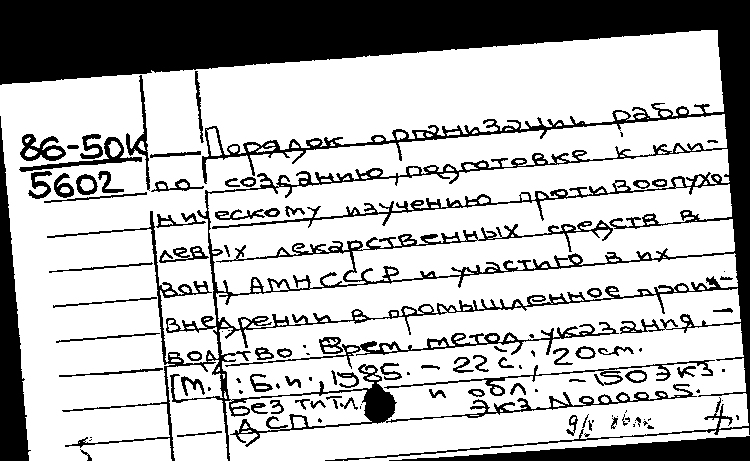 86-50К
5602
Порядок организации работ
по созданию, подготовке к кли-
ническому изучению противоопухо-
левых лекарственных средств в
ВОНЦ АМН СССР и участию в их
внедрении в промышленное произ-
водство: Врем. метод. указания. –
[М.]: Б.и., 1985. – 22 с.; 20 см.
Без титл. и обл. – 150 экз.
ДСП. Экз. N000005.